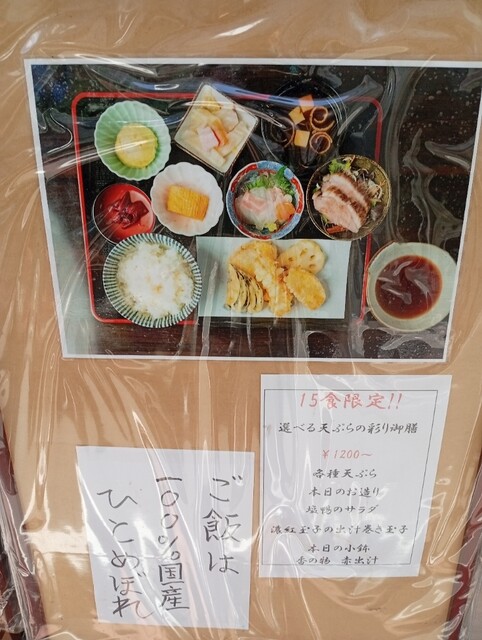 15食限定!!
選べる天ぷらの彩り御膳
¥1200~
各種天ぷら
本日のお造り
塩鴨のサラダ
濃紅玉子の出汁巻き玉子
本日の小鉢
香の物 赤出汁
ご飯は
100%国産
ひとめぼれ